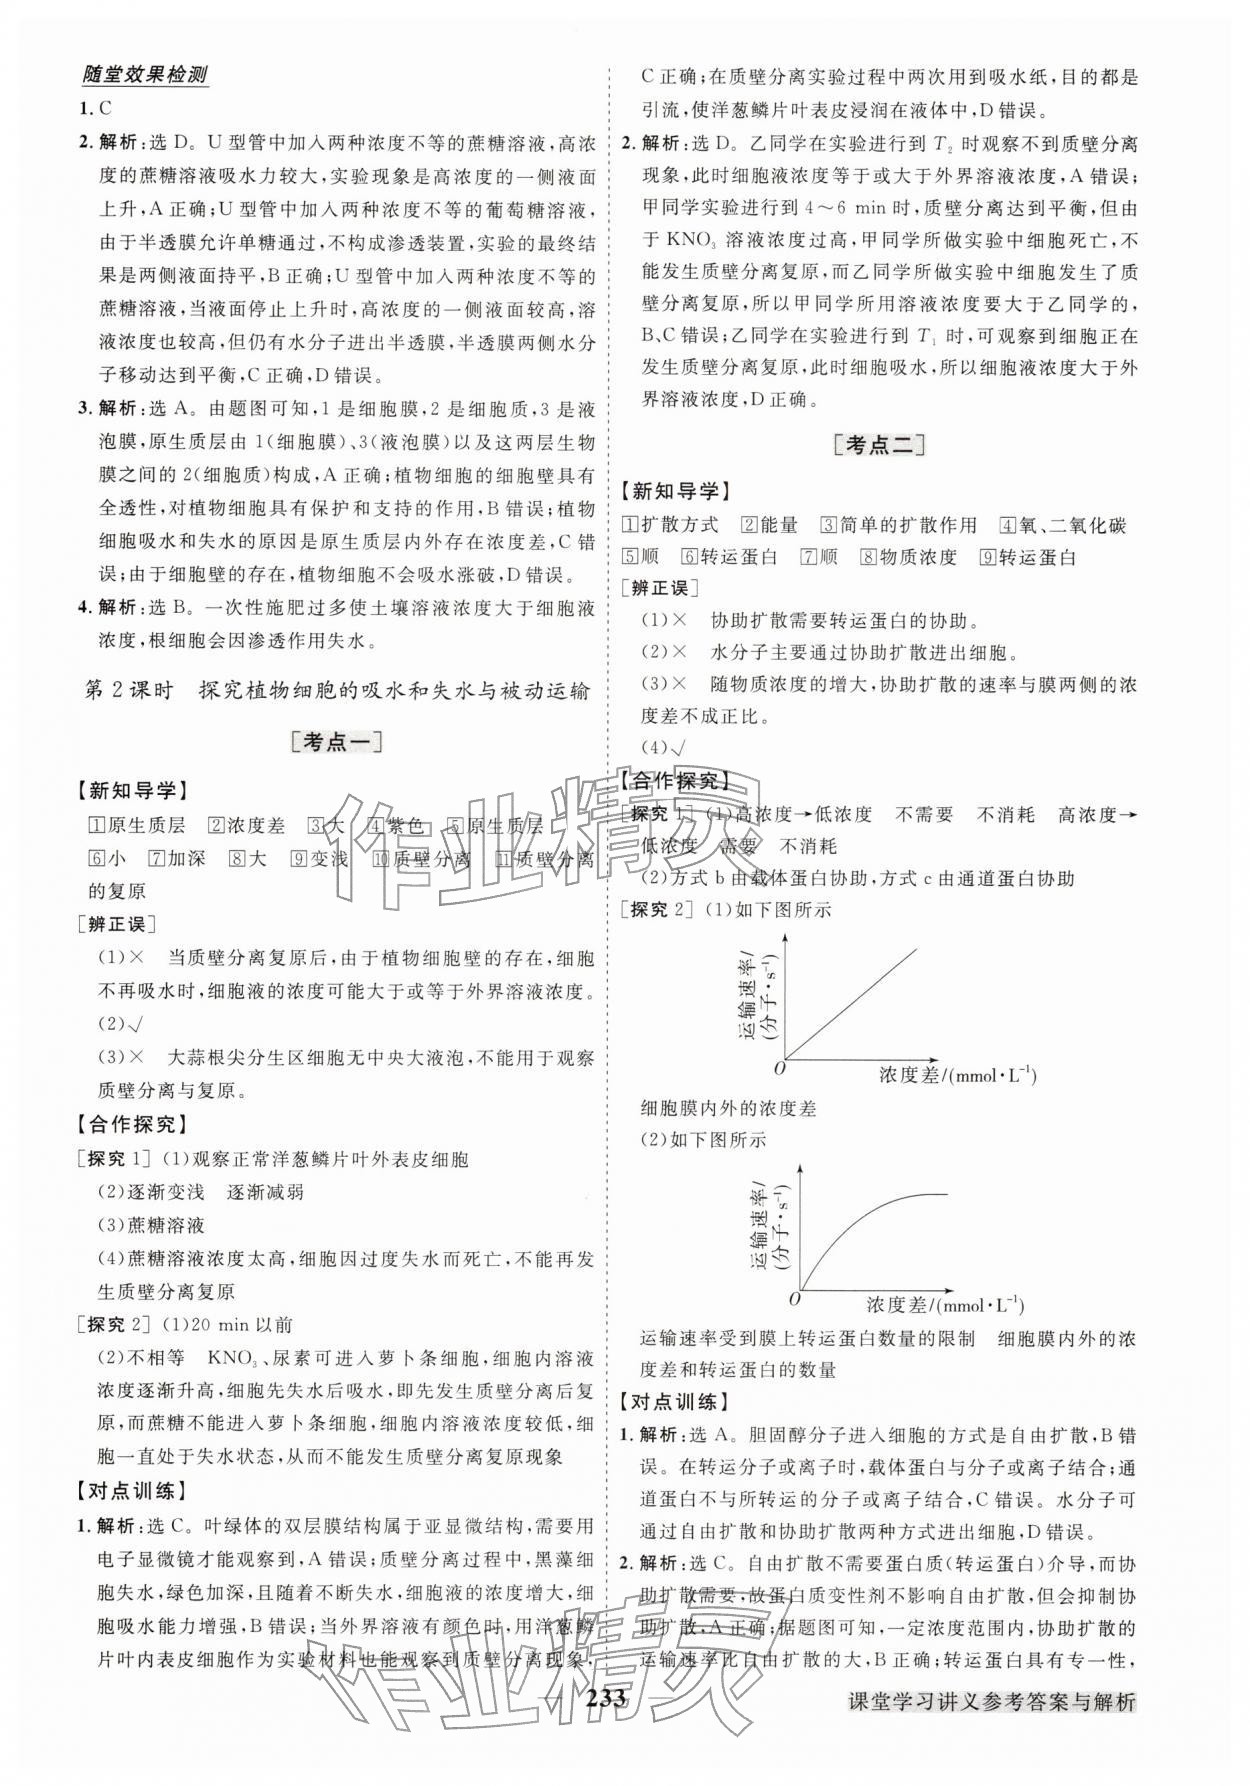 随堂效果检测
1. C
2. 解析:选 D。U 型管中加入两种浓度不等的蔗糖溶液,高浓
度的蔗糖溶液吸水力较大,实验现象是高浓度的一侧液面
上升,A 正确;U 型管中加入两种浓度不等的葡萄糖溶液,
由于半透膜允许单糖通过,不构成渗透装置,实验的最终结
果是两侧液面持平,B 正确;U 型管中加入两种浓度不等的
蔗糖溶液,当液面停止上升时,高浓度的一侧液面较高,溶
液浓度也较高,但仍有水分子进出半透膜,半透膜两侧水分
子移动达到平衡,C 正确,D 错误。
3. 解析:选 A。由题图可知,1 是细胞膜,2 是细胞质,3 是液
泡膜,原生质层由 1(细胞膜)、3(液泡膜)以及这两层生物
膜之间的 2(细胞质)构成,A 正确;植物细胞的细胞壁具有
全透性,对植物细胞具有保护和支持的作用,B 错误;植物
细胞吸水和失水的原因是原生质层内外存在浓度差,C 错
误;由于细胞壁的存在,植物细胞不会吸水涨破,D 错误。
4. 解析:选 B。一次性施肥过多使土壤溶液浓度大于细胞液
浓度,根细胞会因渗透作用失水。
第 2 课时　探究植物细胞的吸水和失水与被动运输
[考点一]
【新知导学】
1原生质层　2浓度差　3大　4紫色　5原生质层
6小　7加深　8大　9变浅　10质壁分离　11质壁分离
的复原
[辨正误]
(1)×　当质壁分离复原后,由于植物细胞壁的存在,细胞
不再吸水时,细胞液的浓度可能大于或等于外界溶液浓度。
(2)√
(3)×　大蒜根尖分生区细胞无中央大液泡,不能用于观察
质壁分离与复原。
【合作探究】
[探究 1] (1)观察正常洋葱鳞片叶外表皮细胞
(2)逐渐变浅　逐渐减弱
(3)蔗糖溶液
(4)蔗糖溶液浓度太高,细胞因过度失水而死亡,不能再发
生质壁分离复原
[探究 2] (1)20 min 以前
(2)不相等　KNO₃、尿素可进入萝卜条细胞,细胞内溶液
浓度逐渐升高,细胞先失水后吸水,即先发生质壁分离后复
原,而蔗糖不能进入萝卜条细胞,细胞内溶液浓度较低,细
胞一直处于失水状态,从而不能发生质壁分离复原现象
【对点训练】
1. 解析:选 C。叶绿体的双层膜结构属于亚显微结构,需要用
电子显微镜才能观察到,A 错误;质壁分离过程中,黑藻细
胞失水,绿色加深,且随着不断失水,细胞液的浓度增大,细
胞吸水能力增强,B 错误;当外界溶液有颜色时,用洋葱鳞
片叶内表皮细胞作为实验材料也能观察到质壁分离现象,
C 正确;在质壁分离实验过程中两次用到吸水纸,目的都是
引流,使洋葱鳞片叶表皮浸润在液体中,D 错误。
2. 解析:选 D。乙同学在实验进行到 T₂ 时观察不到质壁分离
现象,此时细胞液浓度等于或大于外界溶液浓度,A 错误;
甲同学实验进行到 4～6 min 时,质壁分离达到平衡,但由
于 KNO₃ 溶液浓度过高,甲同学所做实验中细胞死亡,不
能发生质壁分离复原,而乙同学所做实验中细胞发生了质
壁分离复原,所以甲同学所用溶液浓度要大于乙同学的,
B、C 错误;乙同学在实验进行到 T₁ 时,可观察到细胞正在
发生质壁分离复原,此时细胞吸水,所以细胞液浓度大于外
界溶液浓度,D 正确。
[考点二]
【新知导学】
1扩散方式　2能量　3简单的扩散作用　4氧、二氧化碳
5顺　6转运蛋白　7顺　8物质浓度　9转运蛋白
[辨正误]
(1)×　协助扩散需要转运蛋白的协助。
(2)×　水分子主要通过协助扩散进出细胞。
(3)×　随物质浓度的增大,协助扩散的速率与膜两侧的浓
度差不成正比。
(4)√
【合作探究】
[探究 1] (1)高浓度→低浓度　不需要　不消耗　高浓度→
低浓度　需要　不消耗
(2)方式 b 由载体蛋白协助,方式 c 由通道蛋白协助
[探究 2] (1)如下图所示
运输速率/
(分子·s⁻¹)
O
浓度差/(mmol·L⁻¹)
细胞膜内外的浓度差
(2)如下图所示
运输速率/
(分子·s⁻¹)
O
浓度差/(mmol·L⁻¹)
运输速率受到膜上转运蛋白数量的限制　细胞膜内外的浓
度差和转运蛋白的数量
【对点训练】
1. 解析:选 A。胆固醇分子进入细胞的方式是自由扩散,B 错
误。在转运分子或离子时,载体蛋白与分子或离子结合;通
道蛋白不与所转运的分子或离子结合,C 错误。水分子可
通过自由扩散和协助扩散两种方式进出细胞,D 错误。
2. 解析:选 C。自由扩散不需要蛋白质(转运蛋白)介导,而协
助扩散需要,故蛋白质变性剂不影响自由扩散,但会抑制协
助扩散,A 正确;据题图可知,一定浓度范围内,协助扩散的
运输速率比自由扩散的大,B 正确;转运蛋白具有专一性,
233
课堂学习讲义参考答案与解析
作业精灵
作业精灵